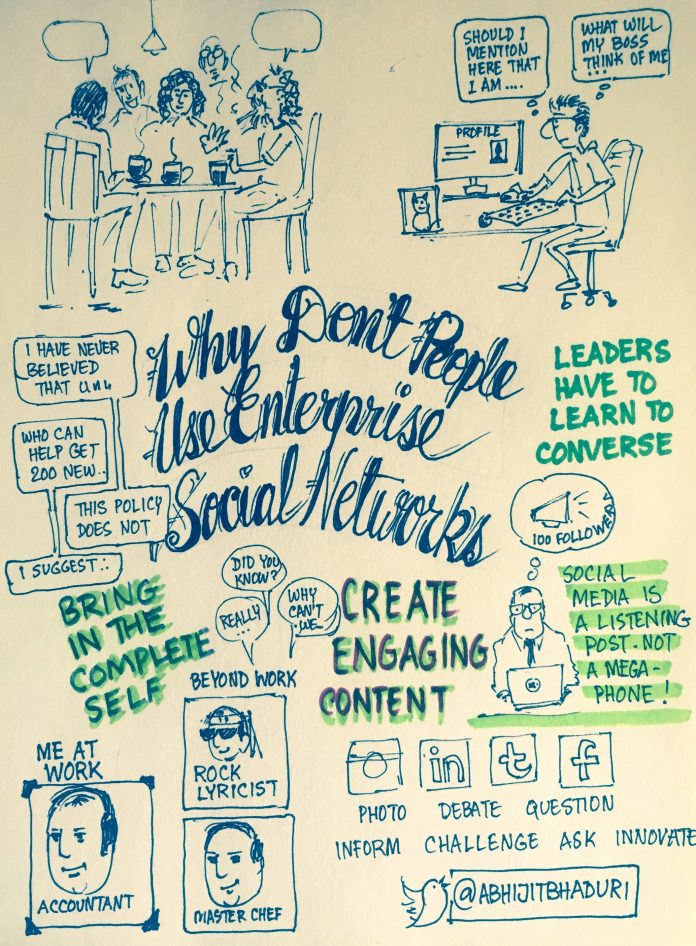 SHOULD I
MENTION
HERE THAT
I AM....
WHAT WILL
MY BOSS
THINK OF ME
...
PROFILE
Why Don't People
Use Enterprise
Social Networks
I HAVE NEVER
BELIEVED
THAT
WHO CAN
HELP GET
200 NEW..
THIS POLICY
DOES NOT
I SUGGEST..
LEADERS
HAVE TO
LEARN TO
CONVERSE
100 FOLLOWERS
SOCIAL
MEDIA IS
A LISTENING
POST-NOT
A MEGA-
PHONE!
BRING
IN THE
COMPLETE
SELF
DID YOU
KNOW?
REALLY
...
WHY
CAN'T
WE..
CREATE
ENGAGING
CONTENT
BEYOND WORK
ROCK
LYRICIST
MASTER CHEF
ME AT
WORK
ACCOUNTANT
in
t
f
PHOTO DEBATE QUESTION
INFORM CHALLENGE ASK INNOVATE
@ABHIJITBHADURI